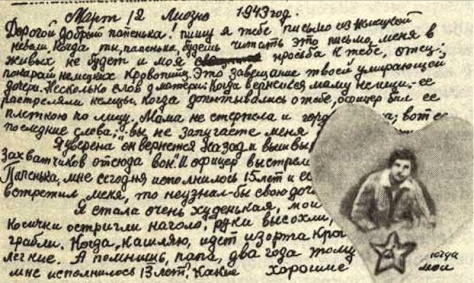 Март 12 Лиозно 1943 год.
Дорогой добрый папенька! пишу я тебе письмо из немецкой
неволи. Когда ты, папенька, будешь читать это письмо, меня в
живых не будет и моя просьба к тебе, отец:
покарай немецких кровопийц. Это завещание твоей умирающей
дочери. Несколько слов о матери: Когда вернешься маму не ищи, ее
растреляли немцы, когда допытывались о тебе, офицер бил ее
плеткою по лицу. Мама не стерпела и гор вот ее
последние слова: "вы не запугаете меня
Я уверена он вернется назад и вышвы
Захватчиков отсюда вон". И офицер выстрел
Папенька, мне сегодня исполнилось 15 лет и ес
встретил меня, то неузнал-бы свою доч
Я стала очень худенькая, мои
косички остригли наголо, руки высохли,
грабли. Когда кашляю, идет изорта кро
легкие. А помнишь, папа, два года тому когда
мне исполнилось 13 лет. Какие хорошие мои